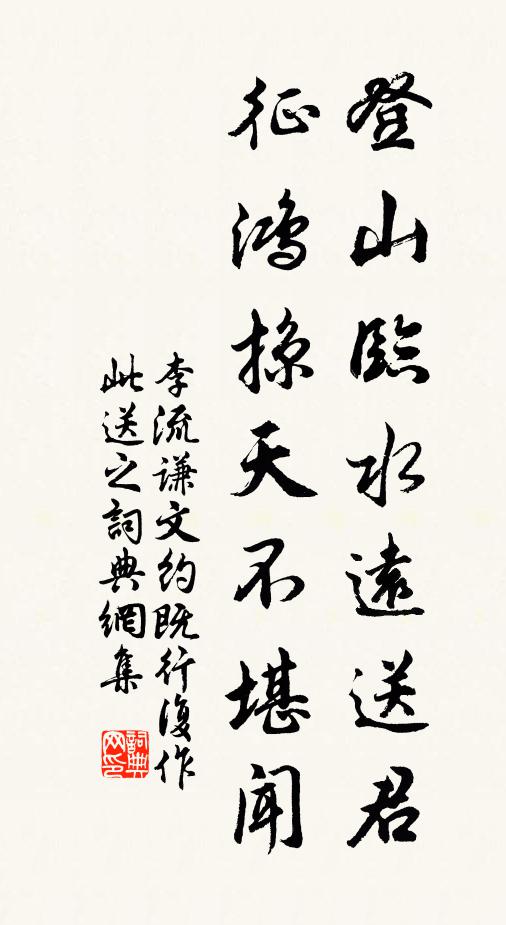 登山臨水遠送君
征鴻掠天不堪聞
李流謙文約既行復作
此送之詞典網集
詞典网印